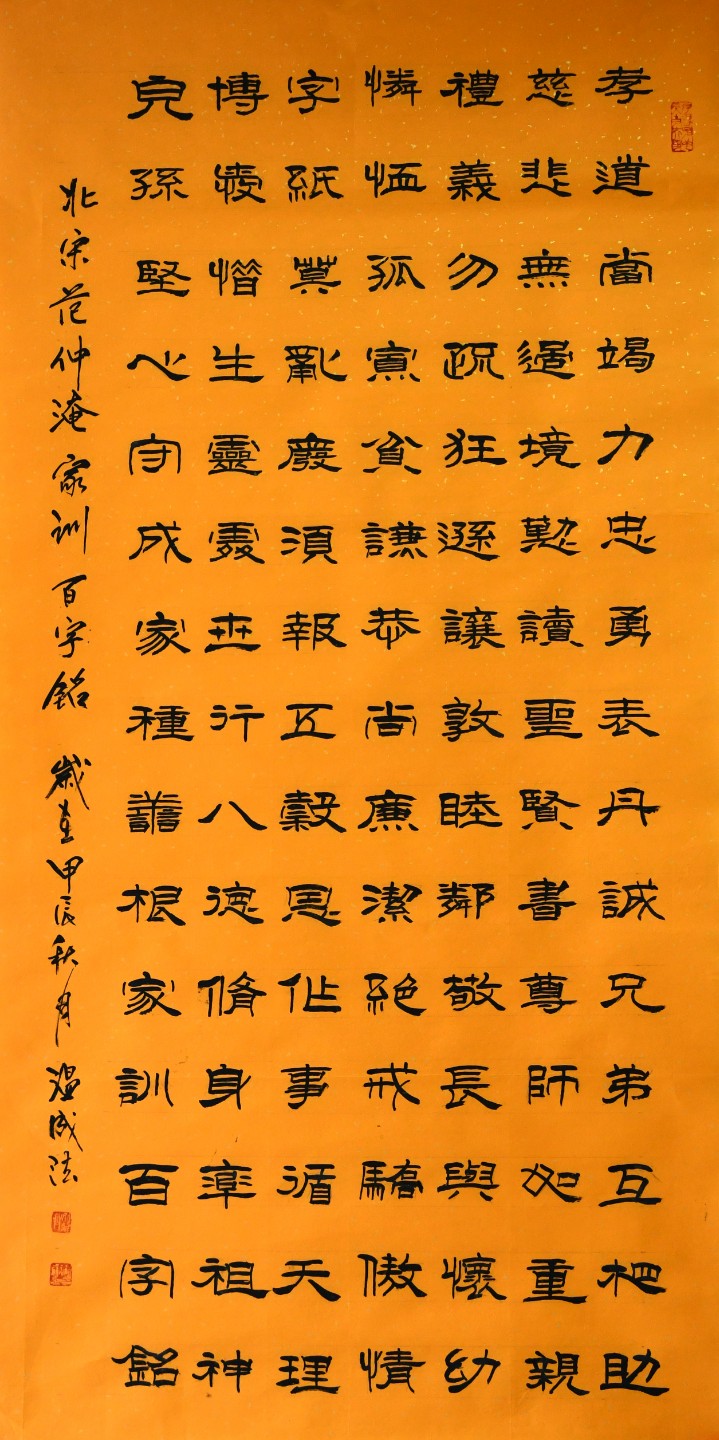 孝道當竭力忠勇表丹誠兄弟互相助
慈悲無過境勤讀聖賢書尊師如重親
禮義勿疏狂遜讓敦睦鄰敬長與懷幼
憐恤孤寡貧謙恭尚廉潔絕戒驕傲情
字紙莫亂廢須報五穀恩作事循天理
博愛惜生靈處世行八德脩身率祖神
兒孫堅心守成家種善根家訓百字銘
北宋范仲淹家訓百字銘 歲在甲辰秋月 温成法